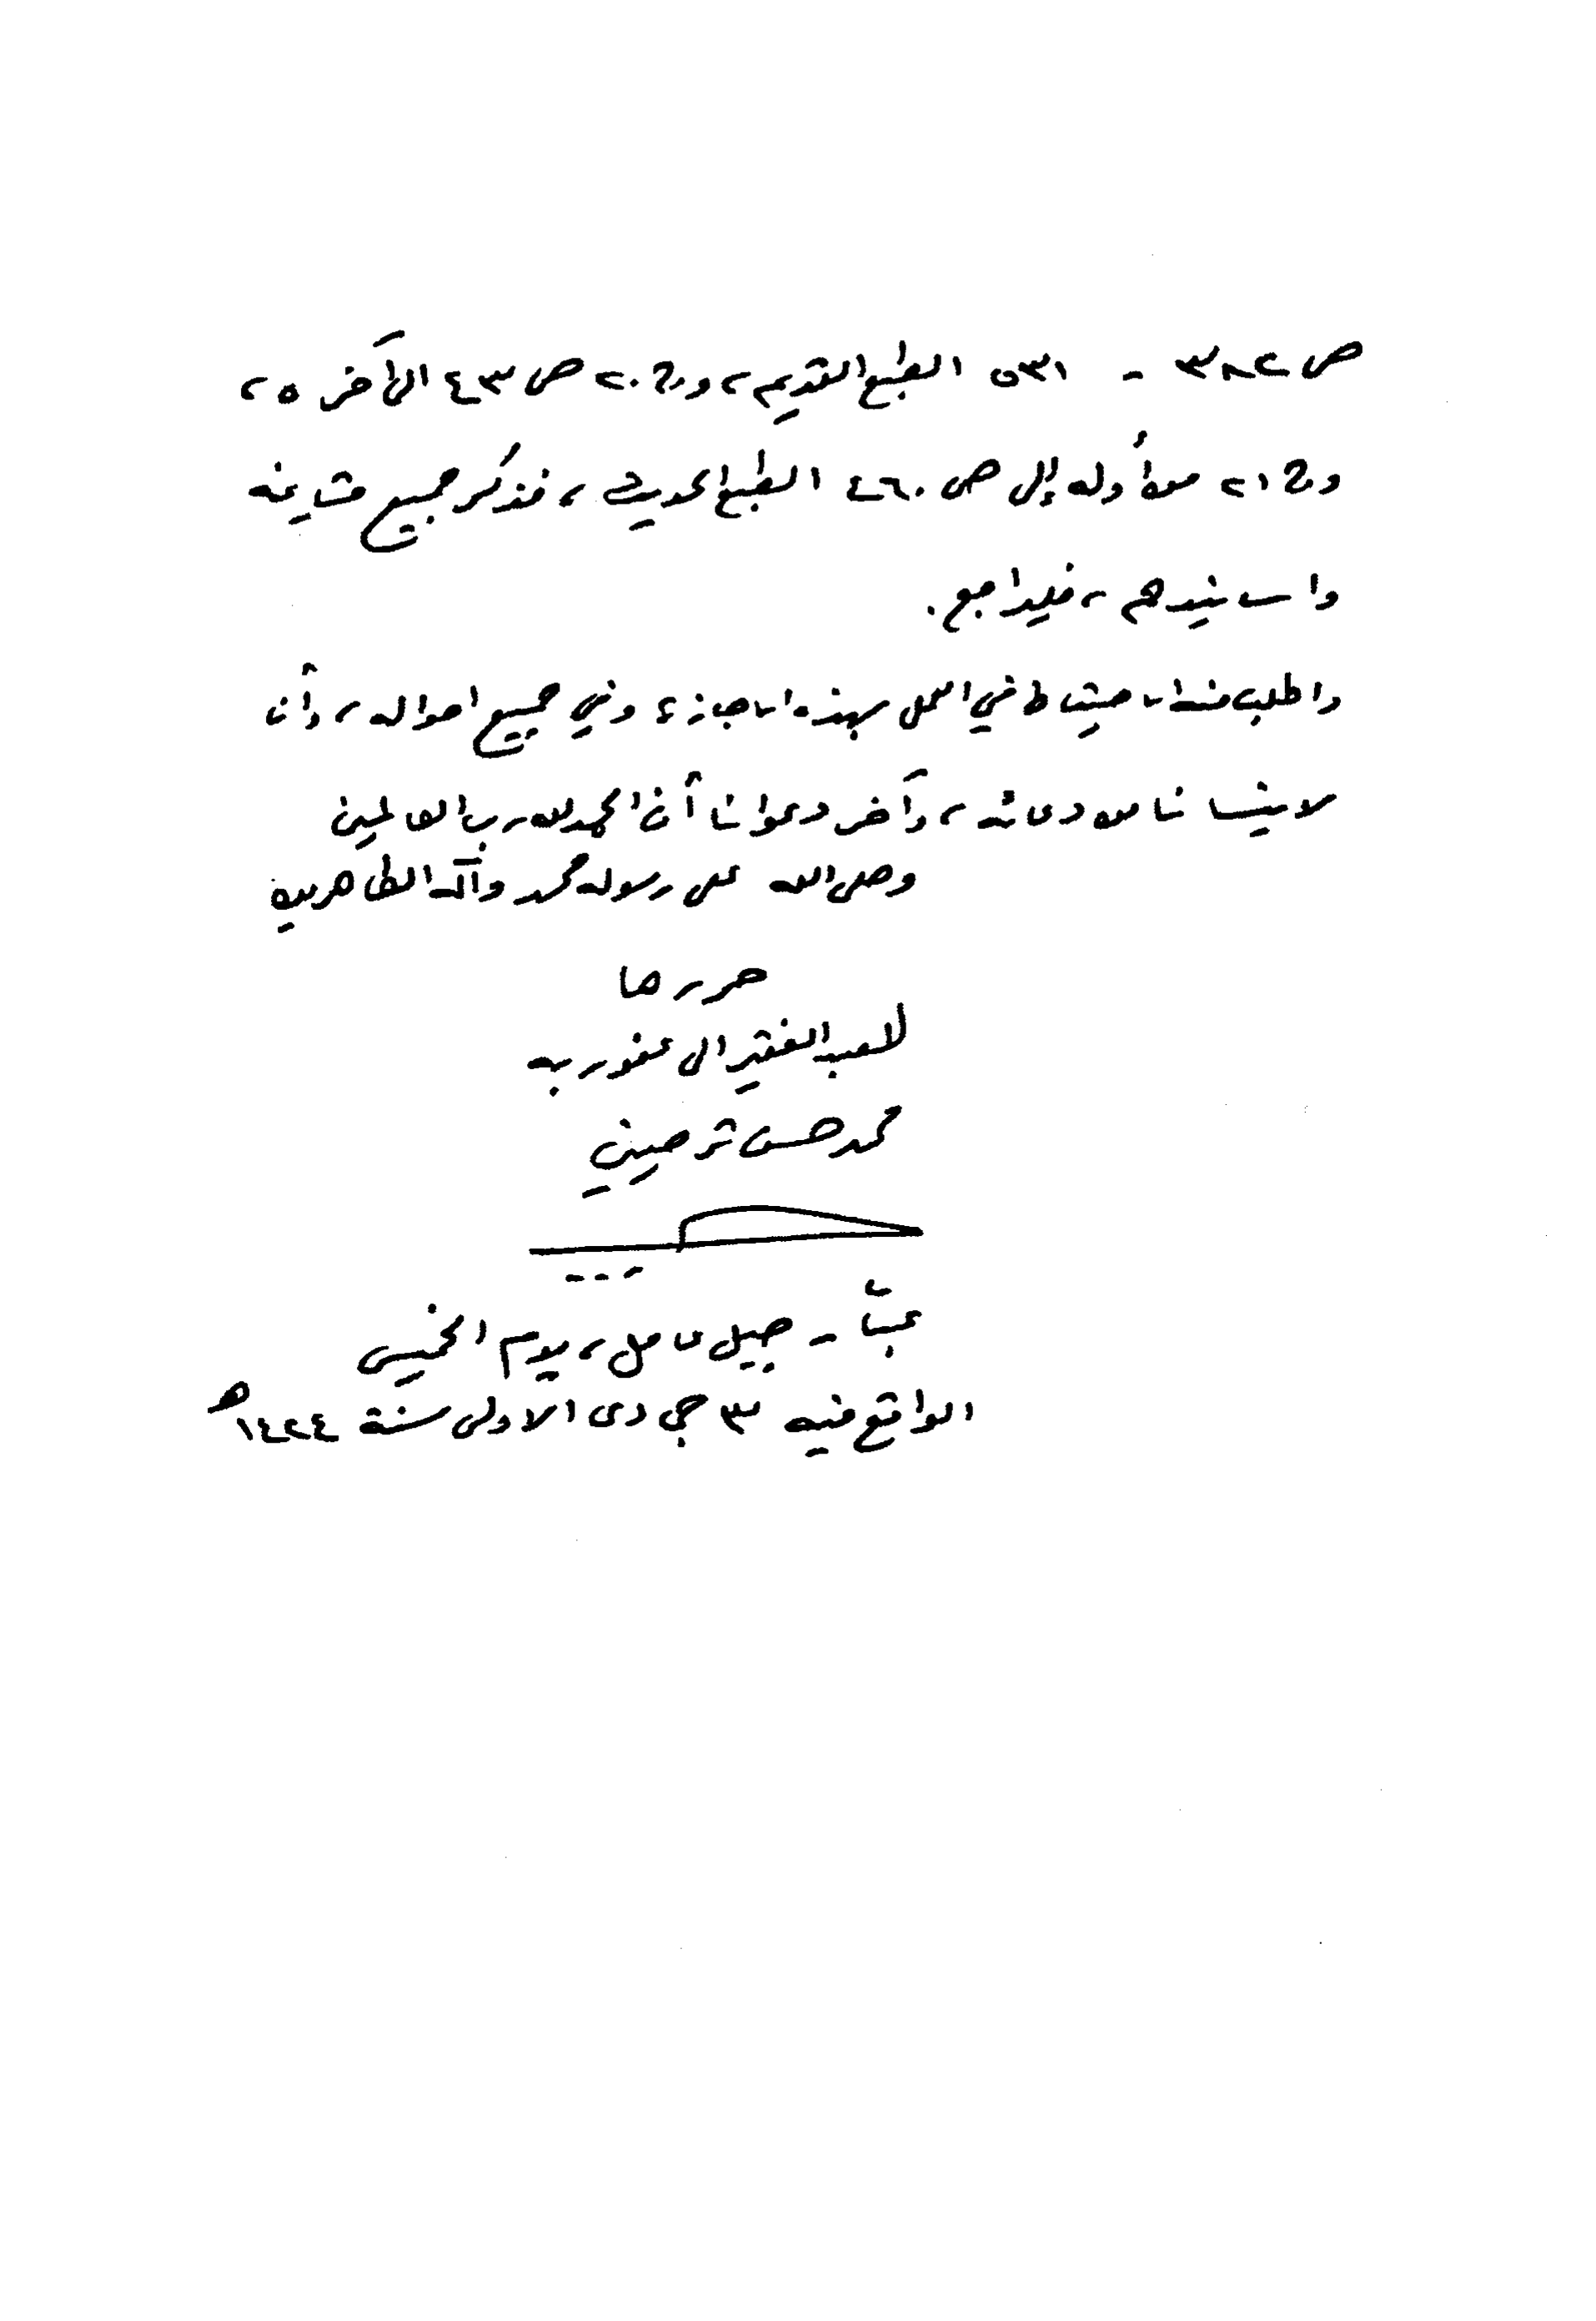 ص ٣٨٢ - ٥٣١ الطبع القديم، وج ٢٠ ص ٤٣ الى آخره،
وج ٢١ من أوله إلى ص ٤٦٠ الطبع الحديث، فذكر جميع مشايخه
واسانيدهم، فليراجع.
واطلب منه الاحتياط في العمل بهذه الاجازة وفي جميع احواله، وأن
لا ينسانا من دعائه، وآخر دعوانا أن الحمد لله رب العالمين
وصلى الله على رسوله محمد وآله الطاهرين
حررها
العبد الفقير الى عفو ربه
محمد حسن ترحيني
عبّا - جبل عامل، يوم الخميس
الواقع فيه ٣ جمادى الاولى سنة ١٤٢٤ هـ